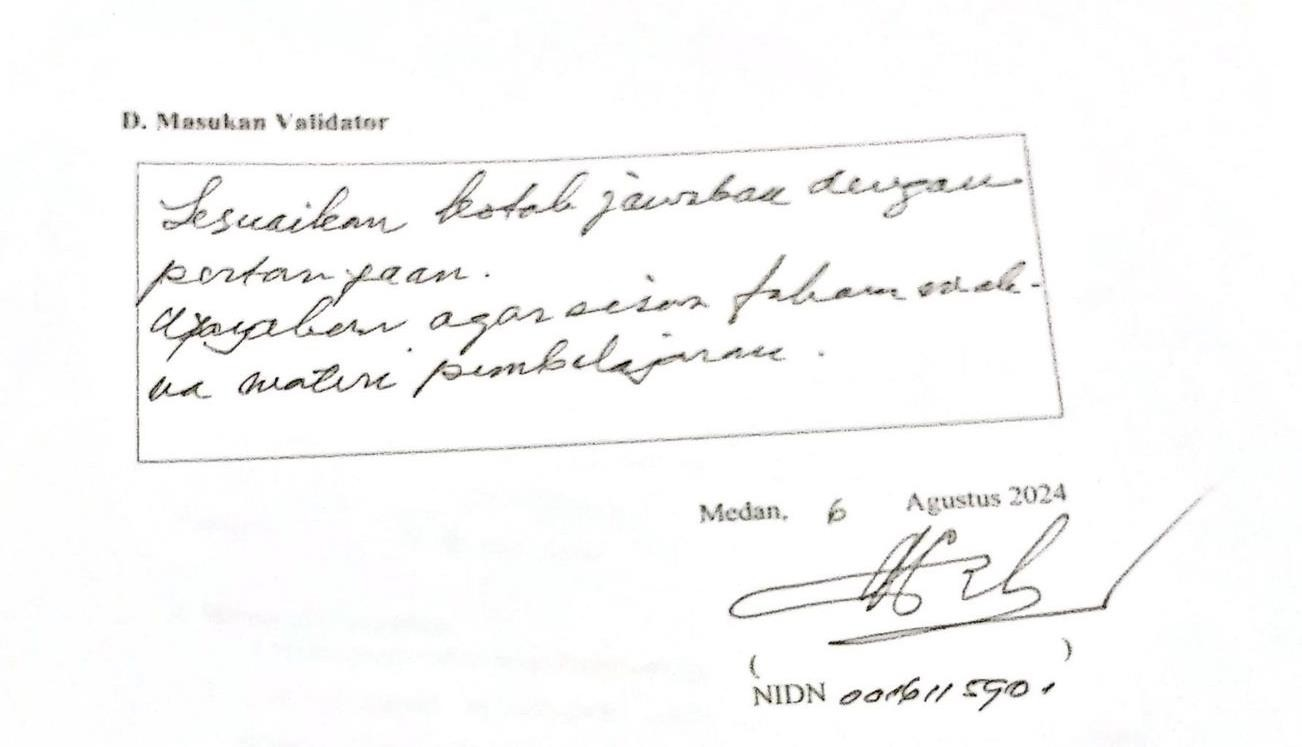 D. Masukan Validator
Sesuaikan kotak jawaban dengan
pertanyaan.
Upayakan agar siswa faham mak-
na materi pembelajaran.
Medan, 6 Agustus 2024
( )
NIDN 0016115901